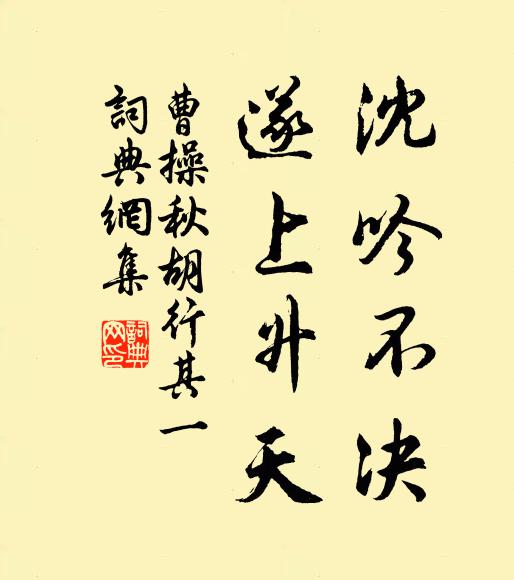 沈吟不决
遂上升天
曹操秋胡行其一
詞典網集
詞典网印